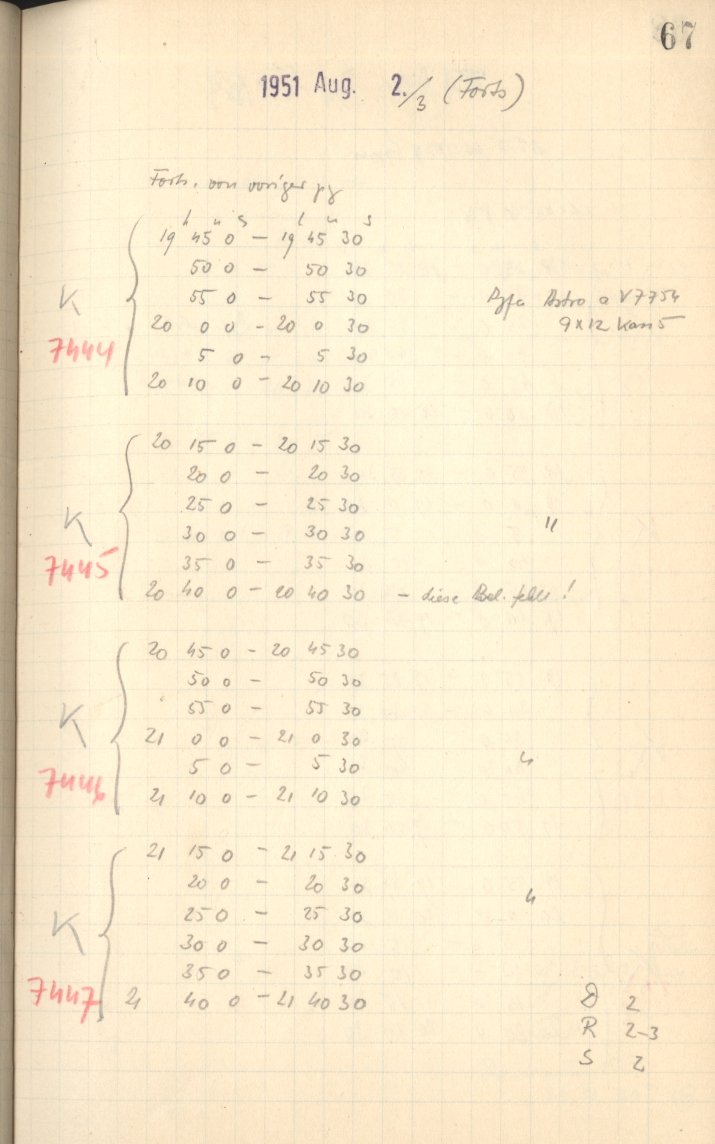 67
1951 Aug. 2./3 (Forts)
Forts. von voriger
h m s – h m s
19 45 0 – 19 45 30
50 0 – 50 30
K 55 0 – 55 30 Agfa Astro a V7754
20 0 0 – 20 0 30 9x12 Kass
7444 5 0 – 5 30
20 10 0 – 20 10 30
20 15 0 – 20 15 30
20 0 – 20 30
25 0 – 25 30
K 30 0 – 30 30 "
7445 35 0 – 35 30
20 40 0 – 20 40 30 – diese Bel. fehlt!
20 45 0 – 20 45 30
50 0 – 50 30
K 55 0 – 55 30
21 0 0 – 21 0 30
7446 5 0 – 5 30 "
21 10 0 – 21 10 30
21 15 0 – 21 15 30
20 0 – 20 30
25 0 – 25 30 "
K 30 0 – 30 30
35 0 – 35 30
7447 21 40 0 – 21 40 30
D 2
R 2–3
S 2